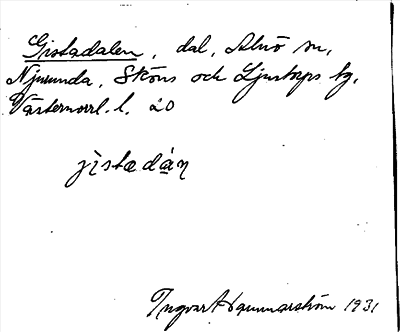 Gistadalen, dal, Alnö sn,
Njurunda, Sköns och Ljustorps tg,
Västernorrl. l. 20
jistadàn
Ingvar Hammarström 1931